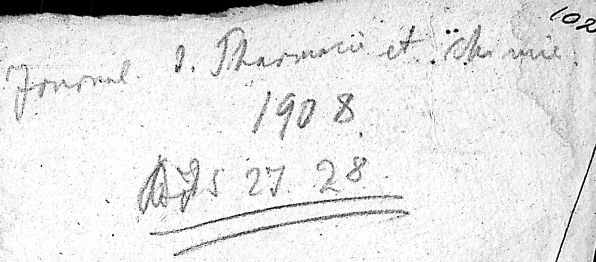 102
Journal d. Pharmacie et chimie.
1908
27. 28